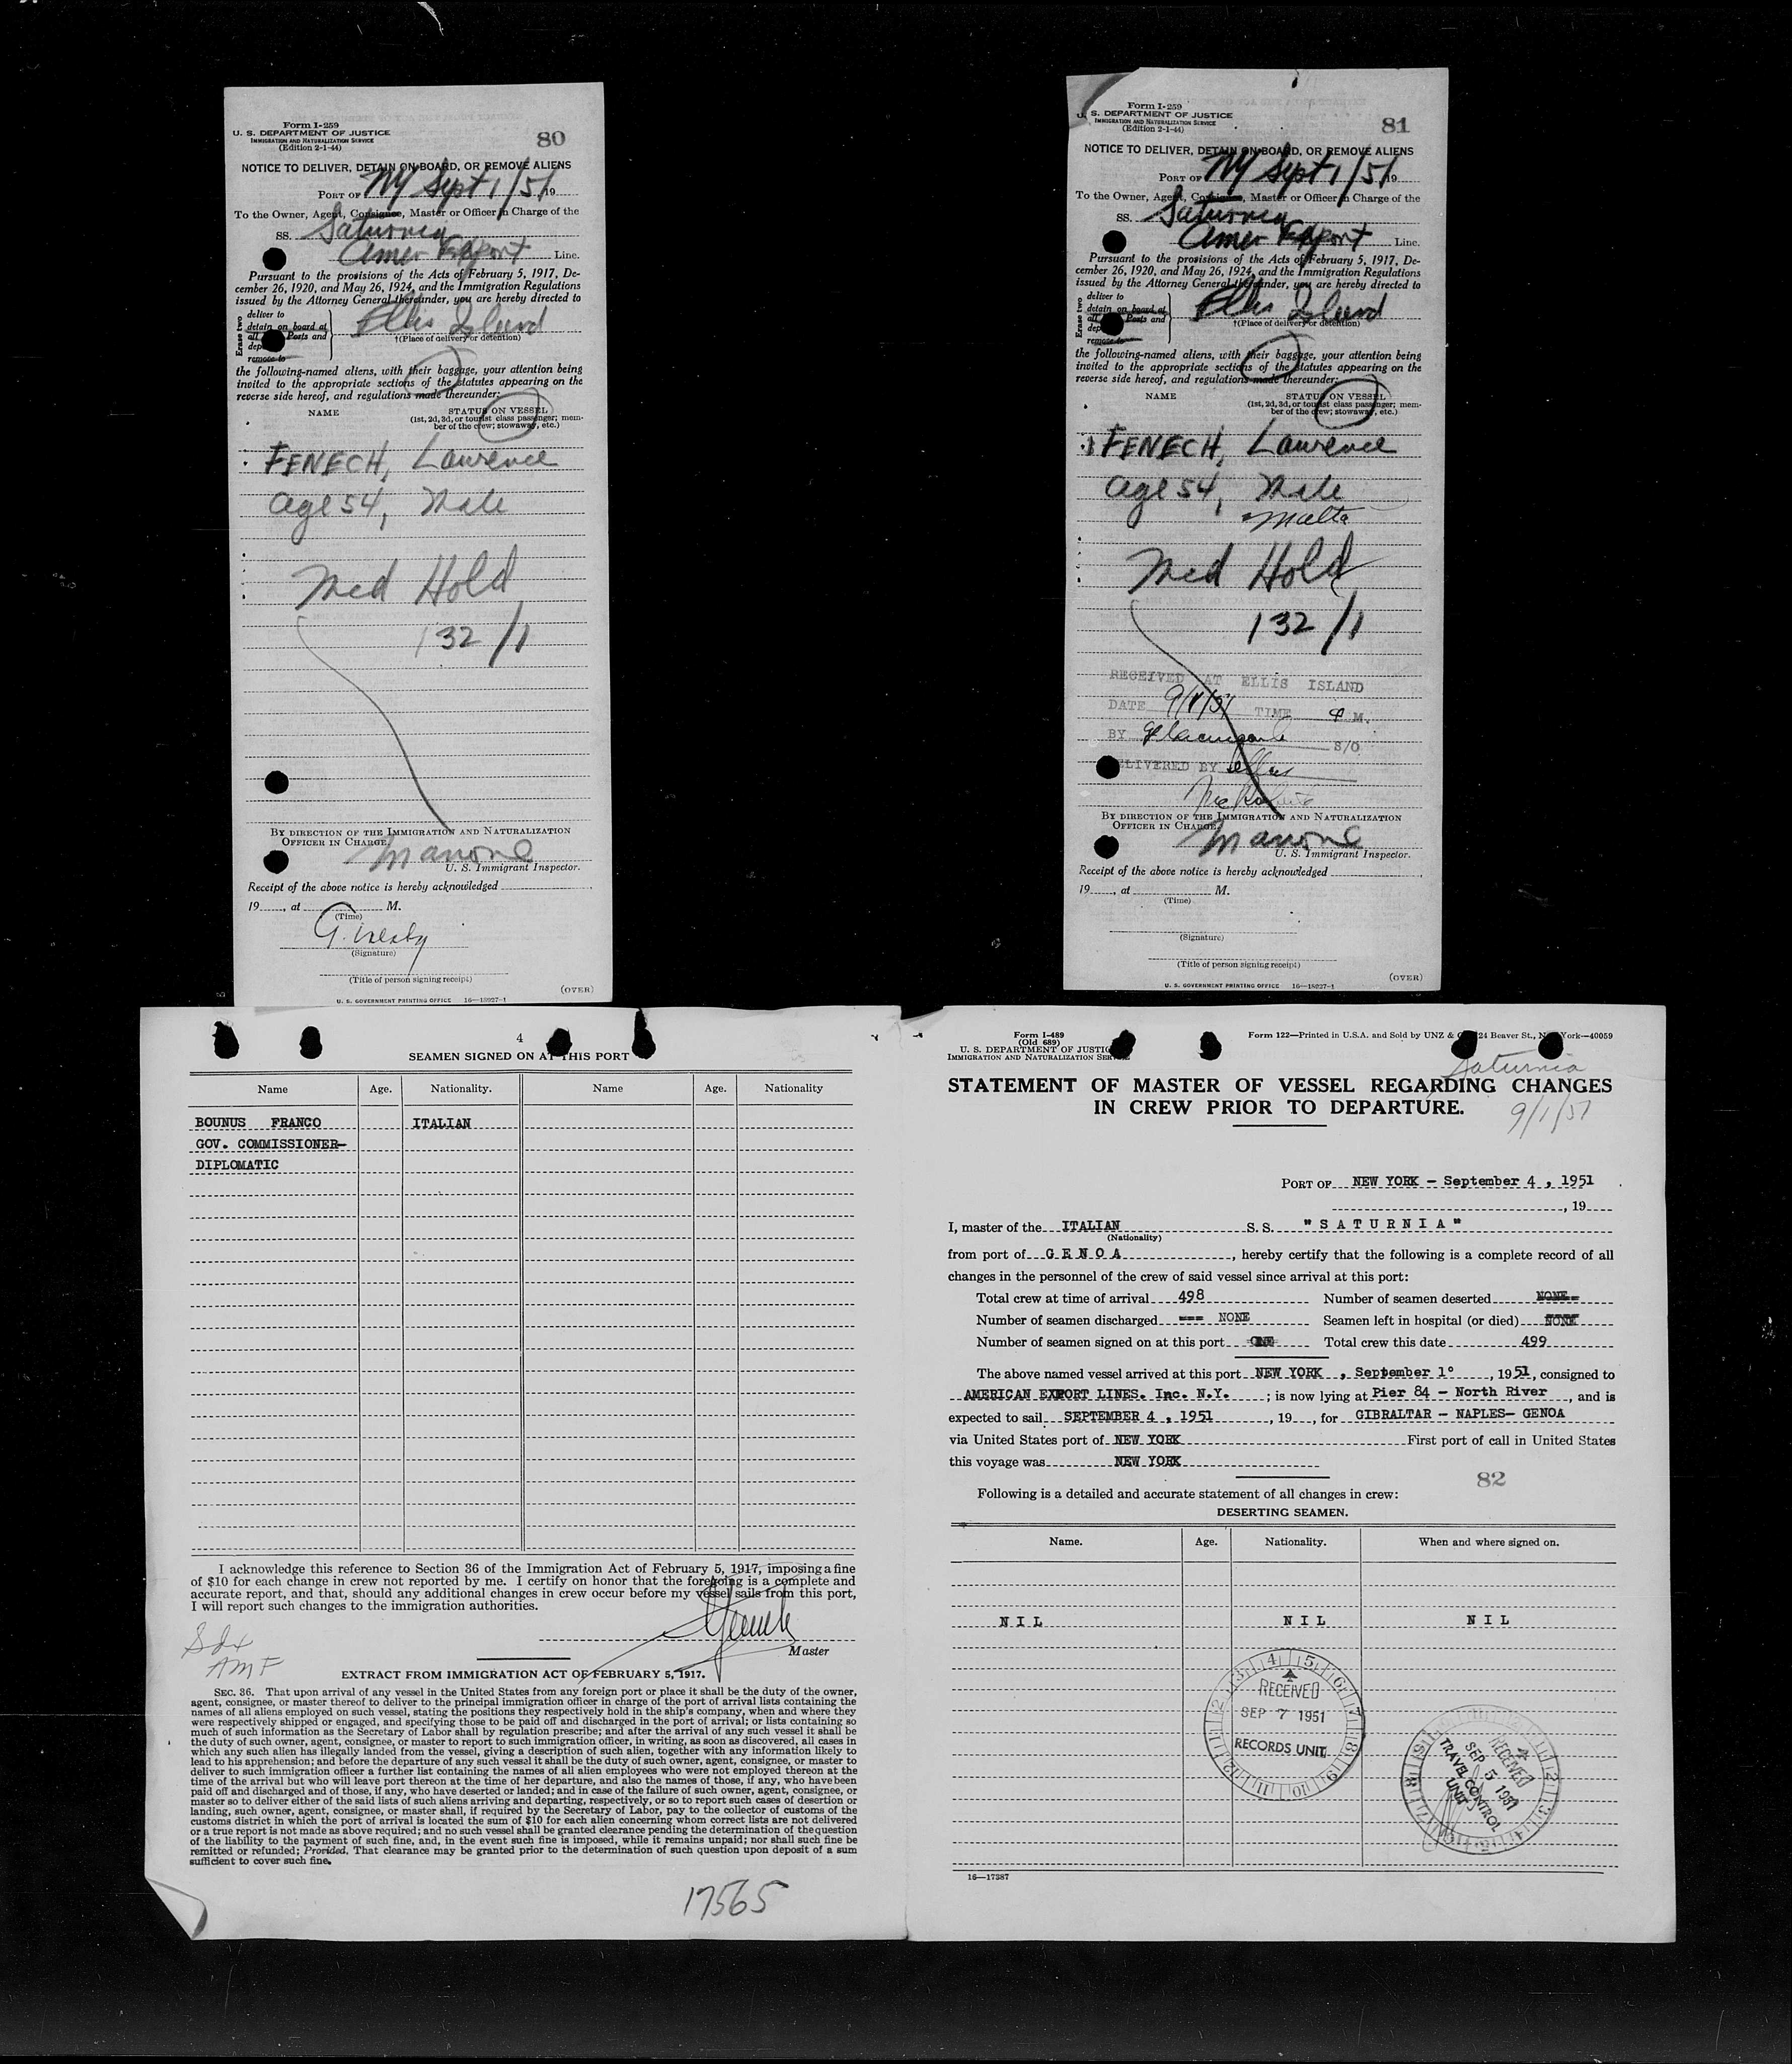 Form I-259
U. S. DEPARTMENT OF JUSTICE
IMMIGRATION AND NATURALIZATION SERVICE
(Edition 2-1-44)
80
NOTICE TO DELIVER, DETAIN ON BOARD, OR REMOVE ALIENS
PORT OF NY Sept 1/51 19
To the Owner, Agent, Consignee, Master or Officer in Charge of the
SS. Saturnia
Amer Export Line.
Pursuant to the provisions of the Acts of February 5, 1917, De-
cember 26, 1920, and May 26, 1924, and the Immigration Regulations
issued by the Attorney General thereunder, you are hereby directed to
Erase two
deliver to
detain on board at
all Ports and
dep
remove to
Ellis Island
†(Place of delivery or detention)
the following-named aliens, with their baggage, your attention being
invited to the appropriate sections of the statutes appearing on the
reverse side hereof, and regulations made thereunder:
NAME STATUS ON VESSEL
(1st, 2d, 3d, or tourist class passenger; mem-
ber of the crew; stowaway, etc.)
FENECH, Lawrence
age 54, Male
Med Hold
132/1
BY DIRECTION OF THE IMMIGRATION AND NATURALIZATION
OFFICER IN CHARGE,
Manone
U. S. Immigrant Inspector.
Receipt of the above notice is hereby acknowledged
19, at M.
(Time)
(Signature)
(Title of person signing receipt)
(OVER)
U. S. GOVERNMENT PRINTING OFFICE 16—18927-1
Form I-259
U. S. DEPARTMENT OF JUSTICE
IMMIGRATION AND NATURALIZATION SERVICE
(Edition 2-1-44)
81
NOTICE TO DELIVER, DETAIN ON BOARD, OR REMOVE ALIENS
PORT OF NY Sept 1/51 19
To the Owner, Agent, Consignee, Master or Officer in Charge of the
SS. Saturnia
Amer Export Line.
Pursuant to the provisions of the Acts of February 5, 1917, De-
cember 26, 1920, and May 26, 1924, and the Immigration Regulations
issued by the Attorney General thereunder, you are hereby directed to
Erase two
deliver to
detain on board at
all Ports and
dep
remove to
Ellis Island
†(Place of delivery or detention)
the following-named aliens, with their baggage, your attention being
invited to the appropriate sections of the statutes appearing on the
reverse side hereof, and regulations made thereunder:
NAME STATUS ON VESSEL
(1st, 2d, 3d, or tourist class passenger; mem-
ber of the crew; stowaway, etc.)
FENECH, Lawrence
age 54, Male
Malta
Med Hold
132/1
RECEIVED AT ELLIS ISLAND
DATE 9/1/51 TIME P M.
BY S/O
DELIVERED BY
BY DIRECTION OF THE IMMIGRATION AND NATURALIZATION
OFFICER IN CHARGE,
Manone
U. S. Immigrant Inspector.
Receipt of the above notice is hereby acknowledged
19, at M.
(Time)
(Signature)
(Title of person signing receipt)
(OVER)
U. S. GOVERNMENT PRINTING OFFICE 16—18927-1
4
SEAMEN SIGNED ON AT THIS PORT
Name Age. Nationality. Name Age. Nationality
BOUNUS FRANCO ITALIAN
GOV. COMMISSIONER—
DIPLOMATIC
I acknowledge this reference to Section 36 of the Immigration Act of February 5, 1917, imposing a fine
of $10 for each change in crew not reported by me. I certify on honor that the foregoing is a complete and
accurate report, and that, should any additional changes in crew occur before my vessel sails from this port,
I will report such changes to the immigration authorities.
Master
AMF
EXTRACT FROM IMMIGRATION ACT OF FEBRUARY 5, 1917.
SEC. 36. That upon arrival of any vessel in the United States from any foreign port or place it shall be the duty of the owner,
agent, consignee, or master thereof to deliver to the principal immigration officer in charge of the port of arrival lists containing the
names of all aliens employed on such vessel, stating the positions they respectively hold in the ship's company, when and where they
were respectively shipped or engaged, and specifying those to be paid off and discharged in the port of arrival; or lists containing so
much of such information as the Secretary of Labor shall by regulation prescribe; and after the arrival of any such vessel it shall be
the duty of such owner, agent, consignee, or master to report to such immigration officer, in writing, as soon as discovered, all cases in
which any such alien has illegally landed from the vessel, giving a description of such alien, together with any information likely to
lead to his apprehension; and before the departure of any such vessel it shall be the duty of such owner, agent, consignee, or master to
deliver to such immigration officer a further list containing the names of all alien employees who were not employed thereon at the
time of the arrival but who will leave port thereon at the time of her departure, and also the names of those, if any, who have been
paid off and discharged and of those, if any, who have deserted or landed; and in case of the failure of such owner, agent, consignee, or
master so to deliver either of the said lists of such aliens arriving and departing, respectively, or so to report such cases of desertion or
landing, such owner, agent, consignee, or master shall, if required by the Secretary of Labor, pay to the collector of customs of the
customs district in which the port of arrival is located the sum of $10 for each alien concerning whom correct lists are not delivered
or a true report is not made as above required; and no such vessel shall be granted clearance pending the determination of the question
of the liability to the payment of such fine, and, in the event such fine is imposed, while it remains unpaid; nor shall such fine be
remitted or refunded; Provided, That clearance may be granted prior to the determination of such question upon deposit of a sum
sufficient to cover such fine.
17565
Form I-489
(Old 689)
U. S. DEPARTMENT OF JUSTICE
IMMIGRATION AND NATURALIZATION SERVICE
Form 122—Printed in U.S.A. and Sold by UNZ & 24 Beaver St., New York—40059
Saturnia
9/1/51
STATEMENT OF MASTER OF VESSEL REGARDING CHANGES
IN CREW PRIOR TO DEPARTURE.
PORT OF NEW YORK – September 4, 1951
, 19
I, master of the ITALIAN S. S. "SATURNIA"
(Nationality)
from port of GENOA, hereby certify that the following is a complete record of all
changes in the personnel of the crew of said vessel since arrival at this port:
Total crew at time of arrival 498 Number of seamen deserted NONE
Number of seamen discharged NONE Seamen left in hospital (or died) NONE
Number of seamen signed on at this port ONE Total crew this date 499
The above named vessel arrived at this port NEW YORK, September 1°, 1951, consigned to
AMERICAN EXPORT LINES. Inc. N.Y.; is now lying at Pier 84 – North River, and is
expected to sail SEPTEMBER 4, 1951, 19, for GIBRALTAR – NAPLES– GENOA
via United States port of NEW YORK First port of call in United States
this voyage was NEW YORK
82
Following is a detailed and accurate statement of all changes in crew:
DESERTING SEAMEN.
Name. Age. Nationality. When and where signed on.
NIL NIL NIL
RECEIVED
SEP 7 1951
RECORDS UNIT
RECEIVED
SEP 5 1951
TRAVEL CONTROL
UNIT
16—17387